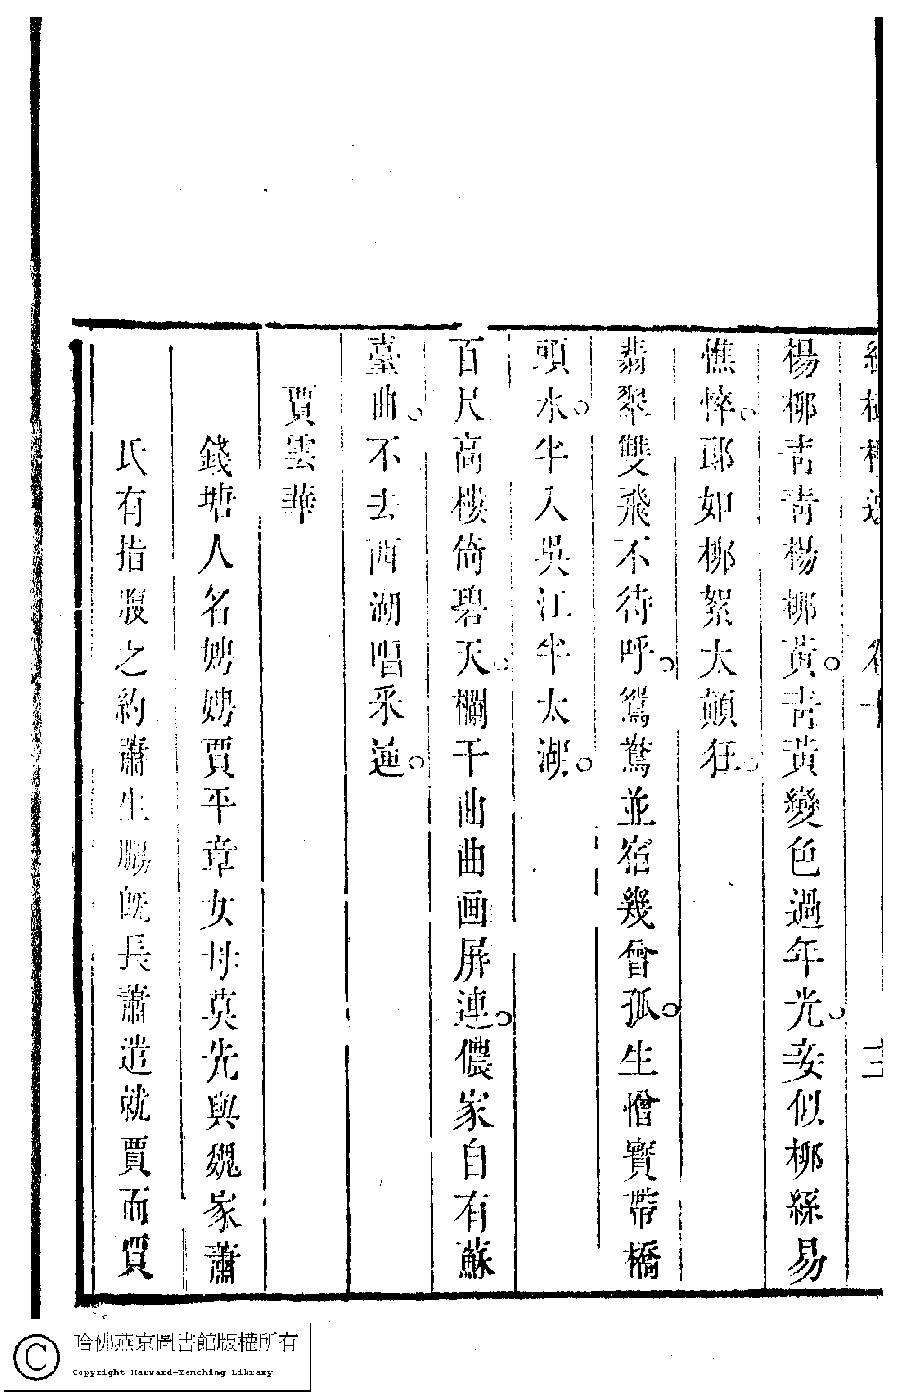 楊柳青青楊柳黃青黃變色過年光妾似柳絲易
憔悴郎如柳絮太顛狂
翡翠雙飛不待呼鴛鴦並宿幾曾孤生憎寳帶橋
頭水半入吳江半太湖
百尺高樓倚碧天欄干曲曲画屏連儂家自有蘇
臺曲不去西湖唱采蓮
賈雲華
錢塘人名娉娉賈平章女母莫光與魏家蕭
氏有指腹之約蕭生鵬旣長蕭遣就賈而賈
哈佛燕京圖書館版權所有
Copyright Harvard-Yenching Library